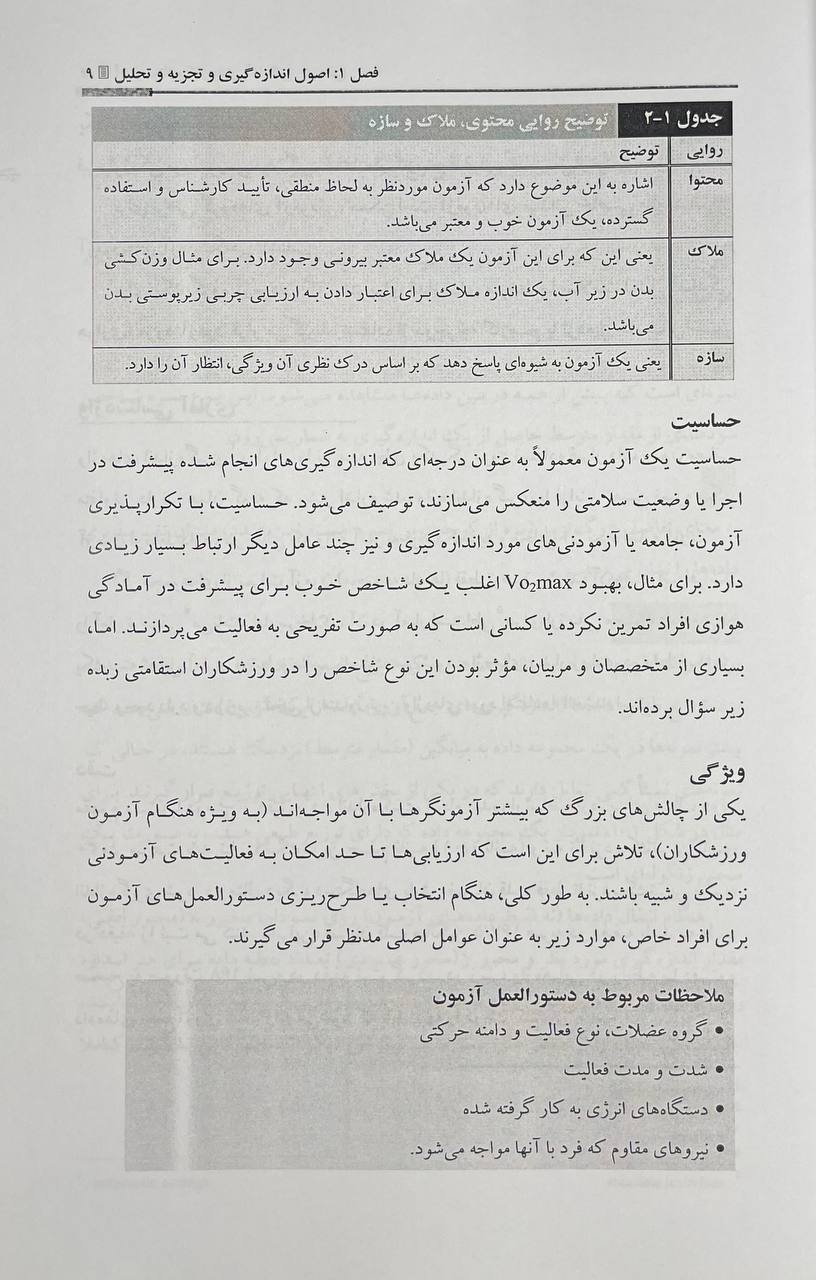 فصل ۱: اصول اندازه‌گیری و تجزیه و تحلیل ۹
جدول ۱-۲ توضیح روایی محتوی، ملاک و سازه
روایی توضیح
محتوا اشاره به این موضوع دارد که آزمون موردنظر به لحاظ منطقی، تأیید کارشناس و استفاده
گسترده، یک آزمون خوب و معتبر می‌باشد.
ملاک یعنی این که برای این آزمون یک ملاک معتبر بیرونی وجود دارد. برای مثال وزن‌کشی
بدن در زیر آب، یک اندازه ملاک برای اعتبار دادن به ارزیابی چربی زیرپوستی بدن
می‌باشد.
سازه یعنی یک آزمون به شیوه‌ای پاسخ دهد که بر اساس درک نظری آن ویژگی، انتظار آن را دارد.
حساسیت
حساسیت یک آزمون معمولاً به عنوان درجه‌ای که اندازه‌گیری‌های انجام شده پیشرفت در
اجرا یا وضعیت سلامتی را منعکس می‌سازند، توصیف می‌شود. حساسیت، با تکرارپذیری
آزمون، جامعه یا آزمودنی‌های مورد اندازه‌گیری و نیز چند عامل دیگر ارتباط بسیار زیادی
دارد. برای مثال، بهبود Vo₂max اغلب یک شاخص خوب برای پیشرفت در آمادگی
هوازی افراد تمرین نکرده یا کسانی است که به صورت تفریحی به فعالیت می‌پردازند. اما،
بسیاری از متخصصان و مربیان، مؤثر بودن این نوع شاخص را در ورزشکاران استقامتی زبده
زیر سؤال برده‌اند.
ویژگی
یکی از چالش‌های بزرگ که بیشتر آزمونگرها با آن مواجه‌اند (به ویژه هنگام آزمون
ورزشکاران)، تلاش برای این است که ارزیابی‌ها تا حد امکان به فعالیت‌های آزمودنی
نزدیک و شبیه باشند. به طور کلی، هنگام انتخاب یا طرح‌ریزی دستورالعمل‌های آزمون
برای افراد خاص، موارد زیر به عنوان عوامل اصلی مدنظر قرار می‌گیرند.
ملاحظات مربوط به دستورالعمل آزمون
• گروه عضلات، نوع فعالیت و دامنه حرکتی
• شدت و مدت فعالیت
• دستگاه‌های انرژی به کار گرفته شده
• نیروهای مقاوم که فرد با آنها مواجه می‌شود.